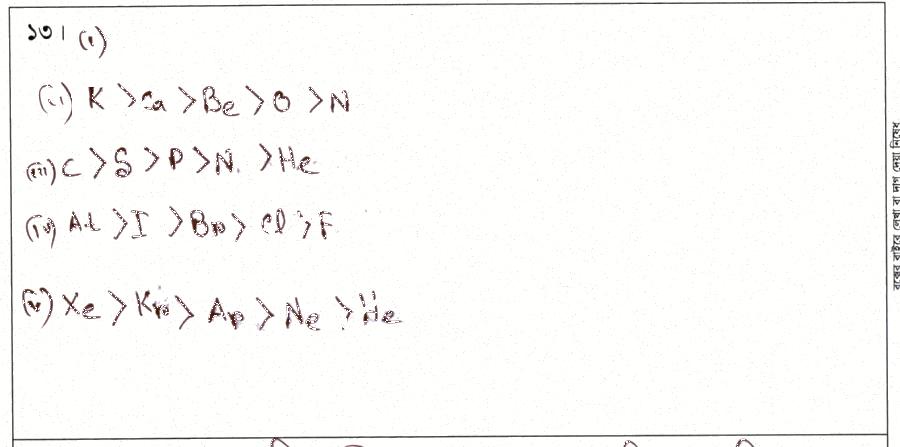 ১৩। (i)
(ii) K > Ca > Be > O > N
(iii) C > S > P > N. > He
(iv) At > I > Br > Cl > F
(v) Xe > Kr > Ar > Ne > He
বক্সের বাইরে লেখা বা দাগ দেয়া নিষেধ